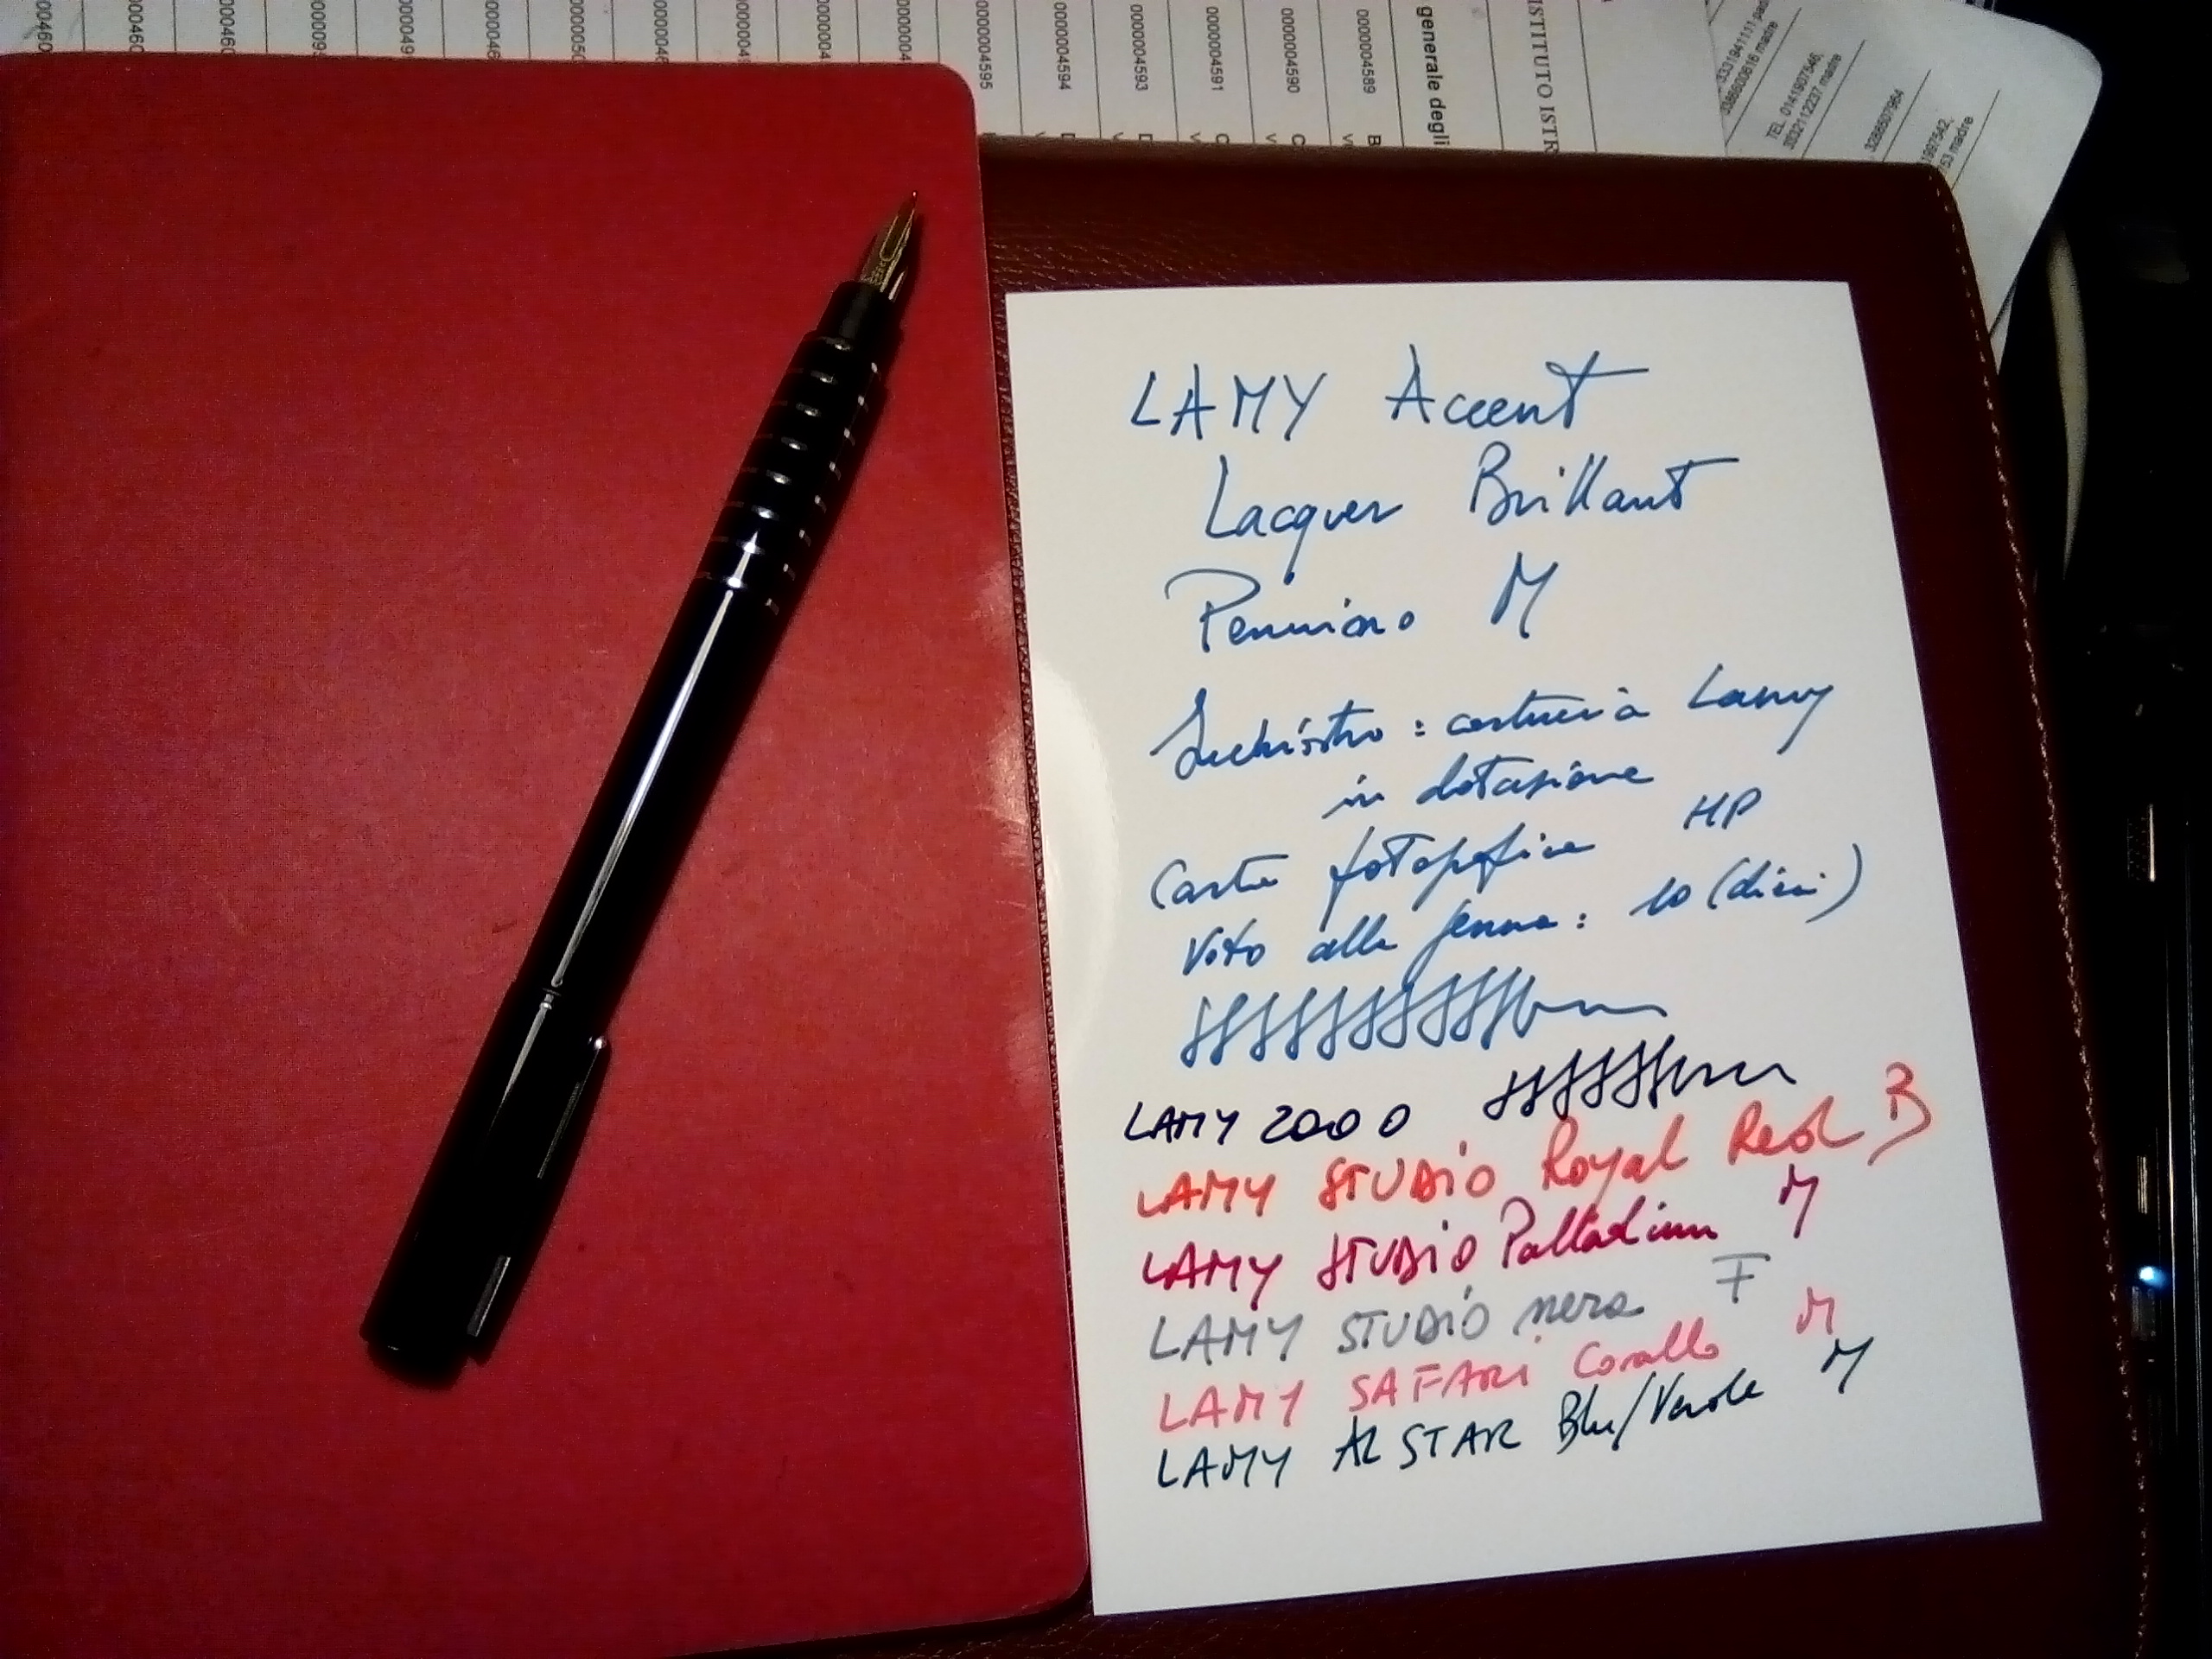 LAMY Accent
Lacquer Brillant
Pennino M
Inchiostro : cartuccia Lamy
in dotazione
Carta fotografica HP
Voto alla penna : 10 (dieci)
LAMY 2000
LAMY STUDIO Royal Red B
LAMY STUDIO Palladium M
LAMY STUDIO nera F
LAMY SAFARI Corallo M
LAMY AL STAR Blu/Verde M
ISTITUTO ISTR
generale degli
0000004589
0000004590
0000004591
0000004593
0000004594
0000004595
TEL. 0141907546,
3332112237 madre
3286507964
53 madre